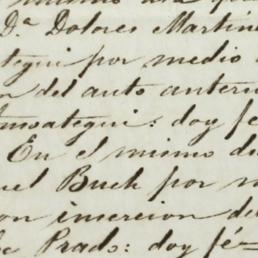 Dª Dolores Martin
tegui por medio
del auto anteri
: doy fé
En el mismo di
uel Buch por m
on insercion del
Prado: doy fé